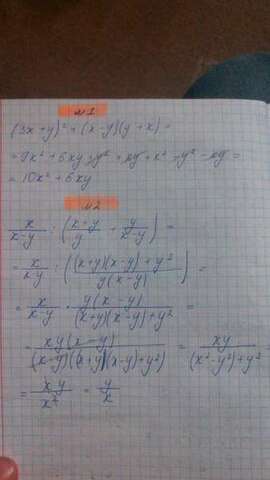 №1
(3x+y)² + (x-y)(y+x) =
= 9x² + 6xy + y² + xy + x² - y² - xy =
= 10x² + 6xy
№2
x/(x-y) : ((x+y)/y + y/(x-y)) =
= x/(x-y) : (((x+y)(x-y)+y²)/(y(x-y))) =
= x/(x-y) · (y(x-y))/((x+y)(x-y)+y²) =
= (xy(x-y))/((x-y)((x+y)(x-y)+y²)) = xy/((x²-y²)+y²)
= xy/x² = y/x